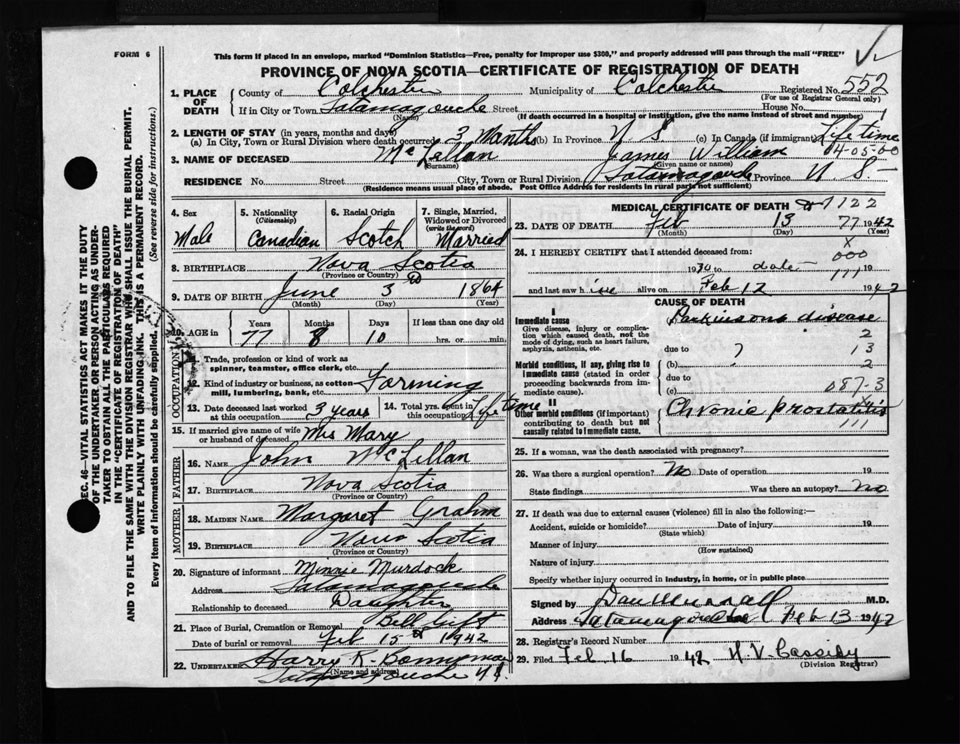 FORM 6
This form if placed in an envelope, marked "Dominion Statistics—Free, penalty for improper use $300," and properly addressed will pass through the mail "FREE"
PROVINCE OF NOVA SCOTIA—CERTIFICATE OF REGISTRATION OF DEATH
1. PLACE OF DEATH
County of Colchester Municipality of Colchester Registered No. 552
(For use of Registrar General only)
If in City or Town Tatamagouche Street House No.
(Name) (If death occurred in a hospital or institution, give its name instead of street and number)
2. LENGTH OF STAY (in years, months and days)
(a) In City, Town or Rural Division where death occurred 3 Months (b) In Province N S (c) In Canada (if immigrant) Life time
3. NAME OF DECEASED McLellan James William 04-05-00
(Surname) (Given name or names)
RESIDENCE No. Street City, Town or Rural Division Tatamagouche Province N. S.
(Residence means usual place of abode. Post Office Address for residents in rural parts not sufficient)
4. Sex Male
5. Nationality (Citizenship) Canadian
6. Racial Origin Scotch
7. Single, Married, Widowed or Divorced (write the word) Married
8. BIRTHPLACE Nova Scotia
(Province or Country)
9. DATE OF BIRTH June 3 1864
(Month) (Day) (Year)
10. AGE in Years Months Days If less than one day old
77 8 10 hrs. or min.
OCCUPATION
11. Trade, profession or kind of work as spinner, teamster, office clerk, etc.
12. Kind of industry or business, as cotton mill, lumbering, bank, etc. Farming
13. Date deceased last worked at this occupation 3 years
14. Total yrs. spent in this occupation Life time
15. If married give name of wife or husband of deceased Mrs Mary
FATHER
16. NAME John McLellan
17. BIRTHPLACE Nova Scotia
(Province or Country)
MOTHER
18. MAIDEN NAME Margaret Grahm
19. BIRTHPLACE Nova Scotia
(Province or Country)
20. Signature of informant Minnie Murdock
Address Tatamagouche
Relationship to deceased Daughter
21. Place of Burial, Cremation or Removal
Date of burial or removal Feb 15 1942
22. UNDERTAKER Harry K. Bonnyman
(Name and address)
Tatamagouche N.S.
MEDICAL CERTIFICATE OF DEATH 7122
23. DATE OF DEATH Feb 13 77 1942
(Month) (Day) (Year)
24. I HEREBY CERTIFY that I attended deceased from:
X 000
to date 111 19
and last saw him alive on Feb 12 1942
CAUSE OF DEATH
I
Immediate cause Parkinsons disease
Give disease, injury or complication which caused death, not the mode of dying, such as heart failure, asphyxia, asthenia, etc.
2
due to 13
Morbid conditions, if any, giving rise to immediate cause (stated in order proceeding backwards from immediate cause).
(b) 2
due to
(c) 087-3
II
Other morbid conditions (if important) contributing to death but not causally related to immediate cause.
Chronic prostatitis
111
25. If a woman, was the death associated with pregnancy?
26. Was there a surgical operation? No Date of operation 19
State findings Was there an autopsy? no
27. If death was due to external causes (violence) fill in also the following:—
Accident, suicide or homicide? Date of injury 19
(State which)
Manner of injury
(How sustained)
Nature of injury
Specify whether injury occurred in industry, in home, or in public place
Signed by Dan Murray M.D.
Address Tatamagouche Feb 13 1942
28. Registrar's Record Number
29. Filed Feb 16 1942 H. V. Cassidy
(Division Registrar)
SEC. 46—VITAL STATISTICS ACT MAKES IT THE DUTY
OF THE UNDERTAKER, OR PERSON ACTING AS UNDER-
TAKER TO OBTAIN ALL THE PARTICULARS REQUIRED
IN THE "CERTIFICATE OF REGISTRATION OF DEATH"
AND TO FILE THE SAME WITH THE DIVISION REGISTRAR WHO SHALL ISSUE THE BURIAL PERMIT.
WRITE PLAINLY WITH UNFADING INK. THIS IS A PERMANENT RECORD.
Every item of information should be carefully supplied. (See reverse side for instructions.)